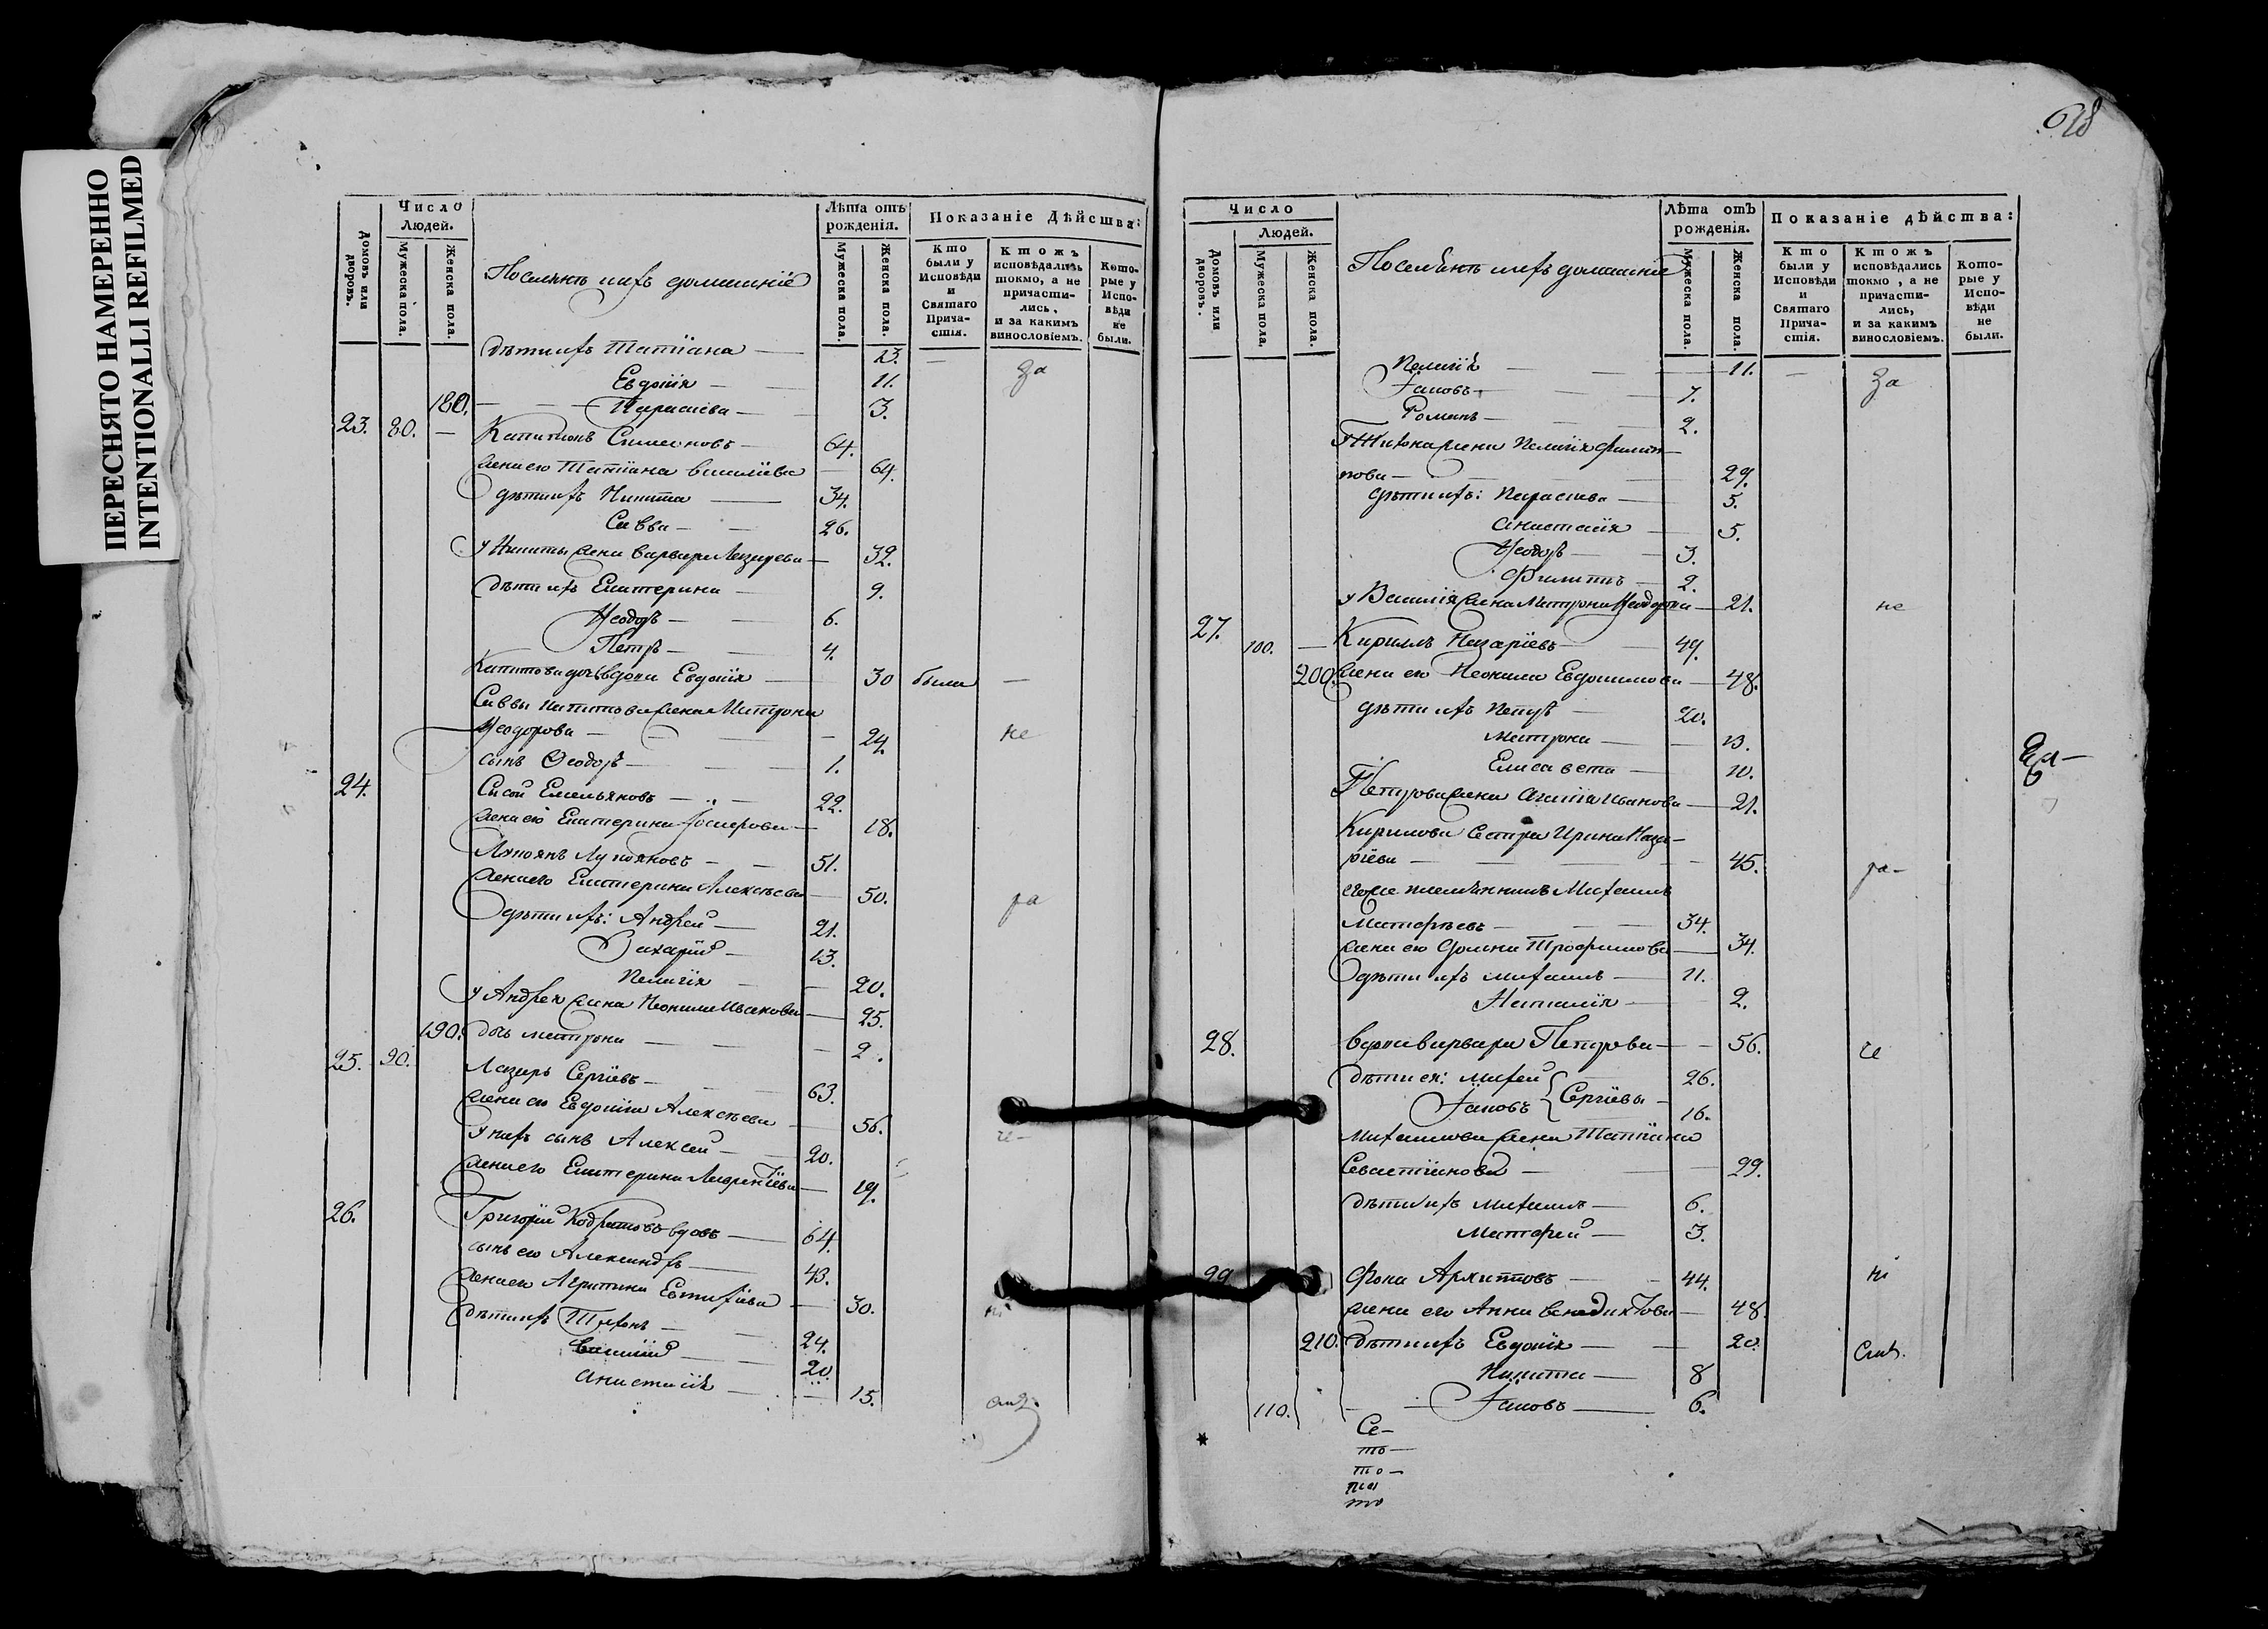 ПЕРЕСНЯТО НАМЕРЕННО
INTENTIONALLI REFILMED
Число
Людей.
Домовъ или дворовъ.
Мужеска пола.
Женска пола.
Поселянъ ихъ домашніе
Лѣта отъ рожденія.
Мужеска пола.
Женска пола.
Показаніе Дѣйства:
Кто были у Исповѣди и Святаго Прича-стія.
Ктожъ исповѣдались токмо, а не причасти-лись, и за какимъ винословіемъ.
Кото-рые у Испо-вѣди не были.
дѣти ихъ Татіана — 13. — За
Евдокія — 11.
180. — Параскева — 3.
23. 80. — Капитонъ Симеоновъ — 64.
жена его Татіана Василіева — 64.
дѣти ихъ Никита — 34.
Савва — 26.
у Никиты жена Варвара Лазарева — 32.
дѣти ихъ Екатерина — 9.
Ѳеодоръ — 6.
Петръ — 4.
дочь вдова Евдокія — 30 были —
Саввы жена Матрона
Ѳеодорова — 24. не
сынъ Ѳеодоръ — 1.
24. Сысой Емельяновъ — 22.
жена его Екатерина — 18.
Лукіянъ Лукіяновъ — 51.
жена его Екатерина Алексѣева — 50. ра
дѣти ихъ: Андрей — 21.
Захарій — 13.
Пелагія — 20.
у Андрея жена Неонила Исакова — 25.
190. дочь Матрона — 2.
25. 90. Лазарь Сергіевъ — 63.
жена его Евдокія Алексѣева — 56.
у нихъ сынъ Алексей — 20. че-
жена его Екатерина Лаврентіева — 19.
26. Григорій вдовъ — 64.
сынъ его Александръ — 43.
жена его Евтихіева — 30.
дѣти ихъ Тихонъ — 24. ні
Василій — 20.
Анастасія — 15.
618
Число
Людей.
Домовъ или дворовъ.
Мужеска пола.
Женска пола.
Поселянъ ихъ домашніе
Лѣта отъ рожденія.
Мужеска пола.
Женска пола.
Показаніе дѣйства:
Кто были у Исповѣди и Святаго Прича-стія.
Ктожъ исповѣдались токмо, а не причасти-лись, и за какимъ винословіемъ.
Кото-рые у Испо-вѣди не были.
Пелагія — 11. — За
Іаковъ — 7.
Романъ — 2.
У Тихона жена Пелагія Филип-
пова — 29.
дѣти ихъ: Параскева — 5.
Анастасія — 5.
Ѳеодоръ — 3.
Филиппъ — 2.
у Василія жена Матрона Ѳеодорова — 21. не
27. 100. — Кириллъ Назаріевъ — 49.
200. жена его Неонила Евдокимова — 48.
дѣти ихъ Петръ — 20.
Матрона — 13.
Елисавета — 10.
Петрова жена Агапія Иванова — 21.
Кирилова сестра Ирина Наза-
ріева — 45. ра-
племянникъ Михаилъ
Матфеевъ — 34.
жена его Домна Трофимова — 34.
дѣти ихъ Михаилъ — 11.
Наталія — 2.
28. вдова Варвара Петрова — 56. че
дѣти ея: Михей 26.
Іаковъ } Сергіевы — 16.
Михайлова жена Татіана
Севастіянова — 29.
дѣти ихъ Михаилъ — 6.
Матфей — 3.
29 Фока Архиповъ — 44. ні
жена его Анна Венедиктова — 48.
210. дѣти ихъ Евдокія — 20.
Никита — 8
110. — Іаковъ — 6.
Се-
то-
то-
*